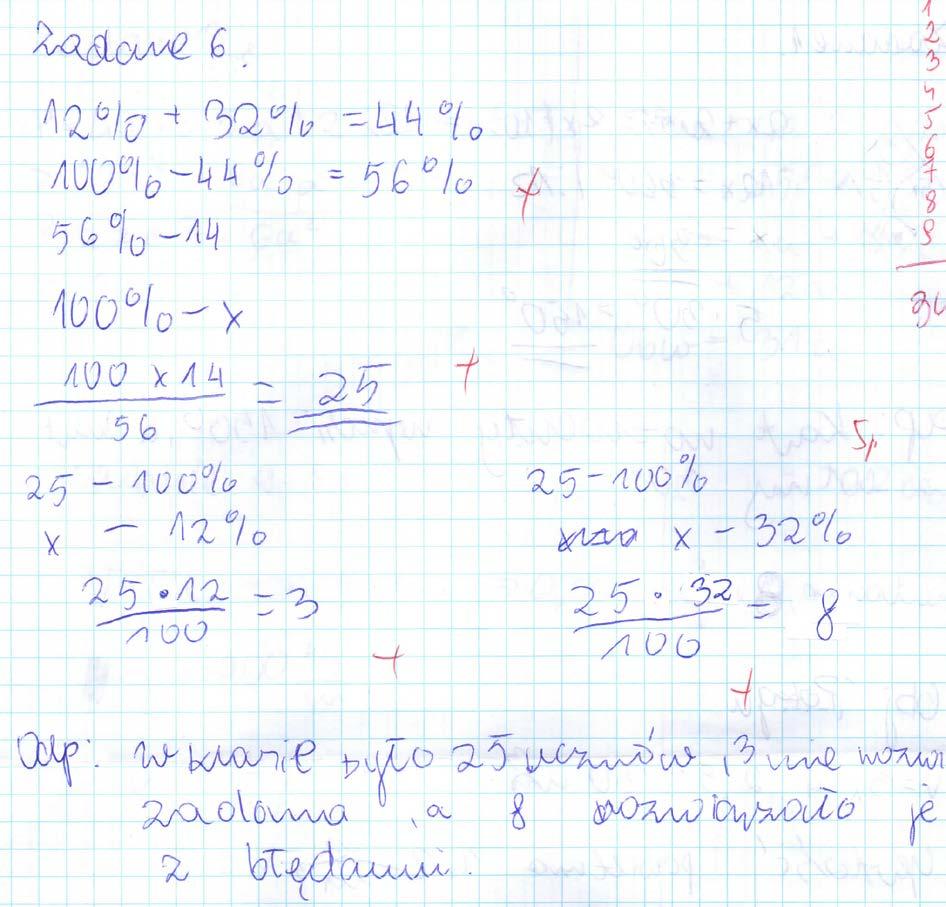 Zadanie 6.
12% + 32% = 44%
100% - 44% = 56% +
56% - 14
100% - x
100 x 14 / 56 = 25 +
5p
25 - 100%
x - 12%
25 · 12 / 100 = 3
+
25 - 100%
x - 32%
25 · 32 / 100 = 8
+
Odp: W klasie było 25 uczniów, 3 nie
zadania, a 8 rozwiązało je
z błędami.
1
2
3
4
5
6
7
8
9